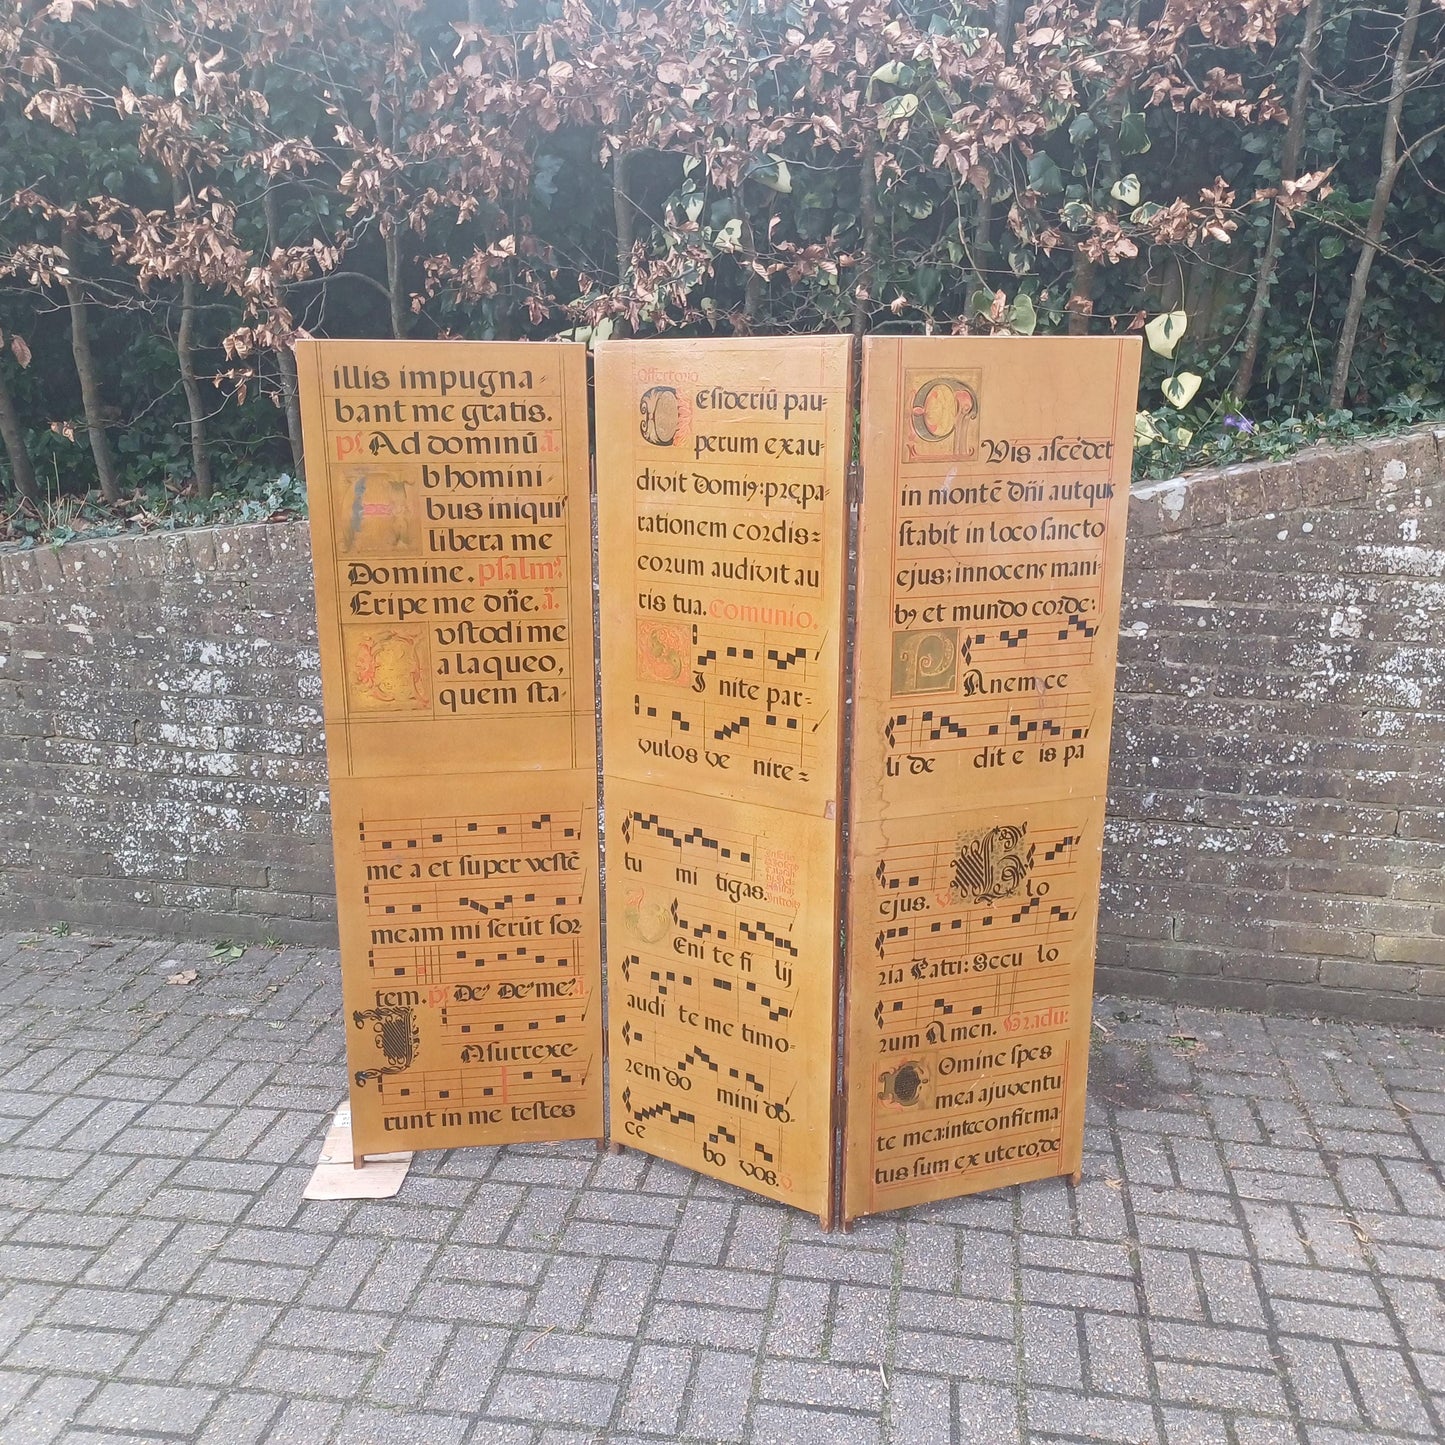 illis impugna-
bant me gratis.
ps. Ad dominū ā.
b homini-
bus iniquis
libera me
Domine. psalm9.
Eripe me dñe. ā.
vstodi me
a laqueo,
quem sta-
me a et super vestē
meam mi serūt sor
tem. ps De9 De9 me9. ā.
Nsurrexe
runt in me testes
Offertorio
Esideriū pau-
perum exau-
divit Domi9: prępa-
rationem cordis=
eorum audivit au
ris tua. Comunio.
S I nite par-
vulos ve nite=
tu mi tigas.
Introit9
V Eni te fi lij
audi te me timo=
rem Do mini do-
ce bo vos. v.
Q Vis ascēdet
in montē Dñi autquis
stabit in loco sancto
ejus; innocens mani-
b9 et mundo corde:
P Anem ce
li de dit e is pa
ejus. v G lo
ria Patri: Secu lo
rum Amen. Gradu:
D Omine spes
mea a juventu
te mea: inte confirma
tus sum ex utero, de